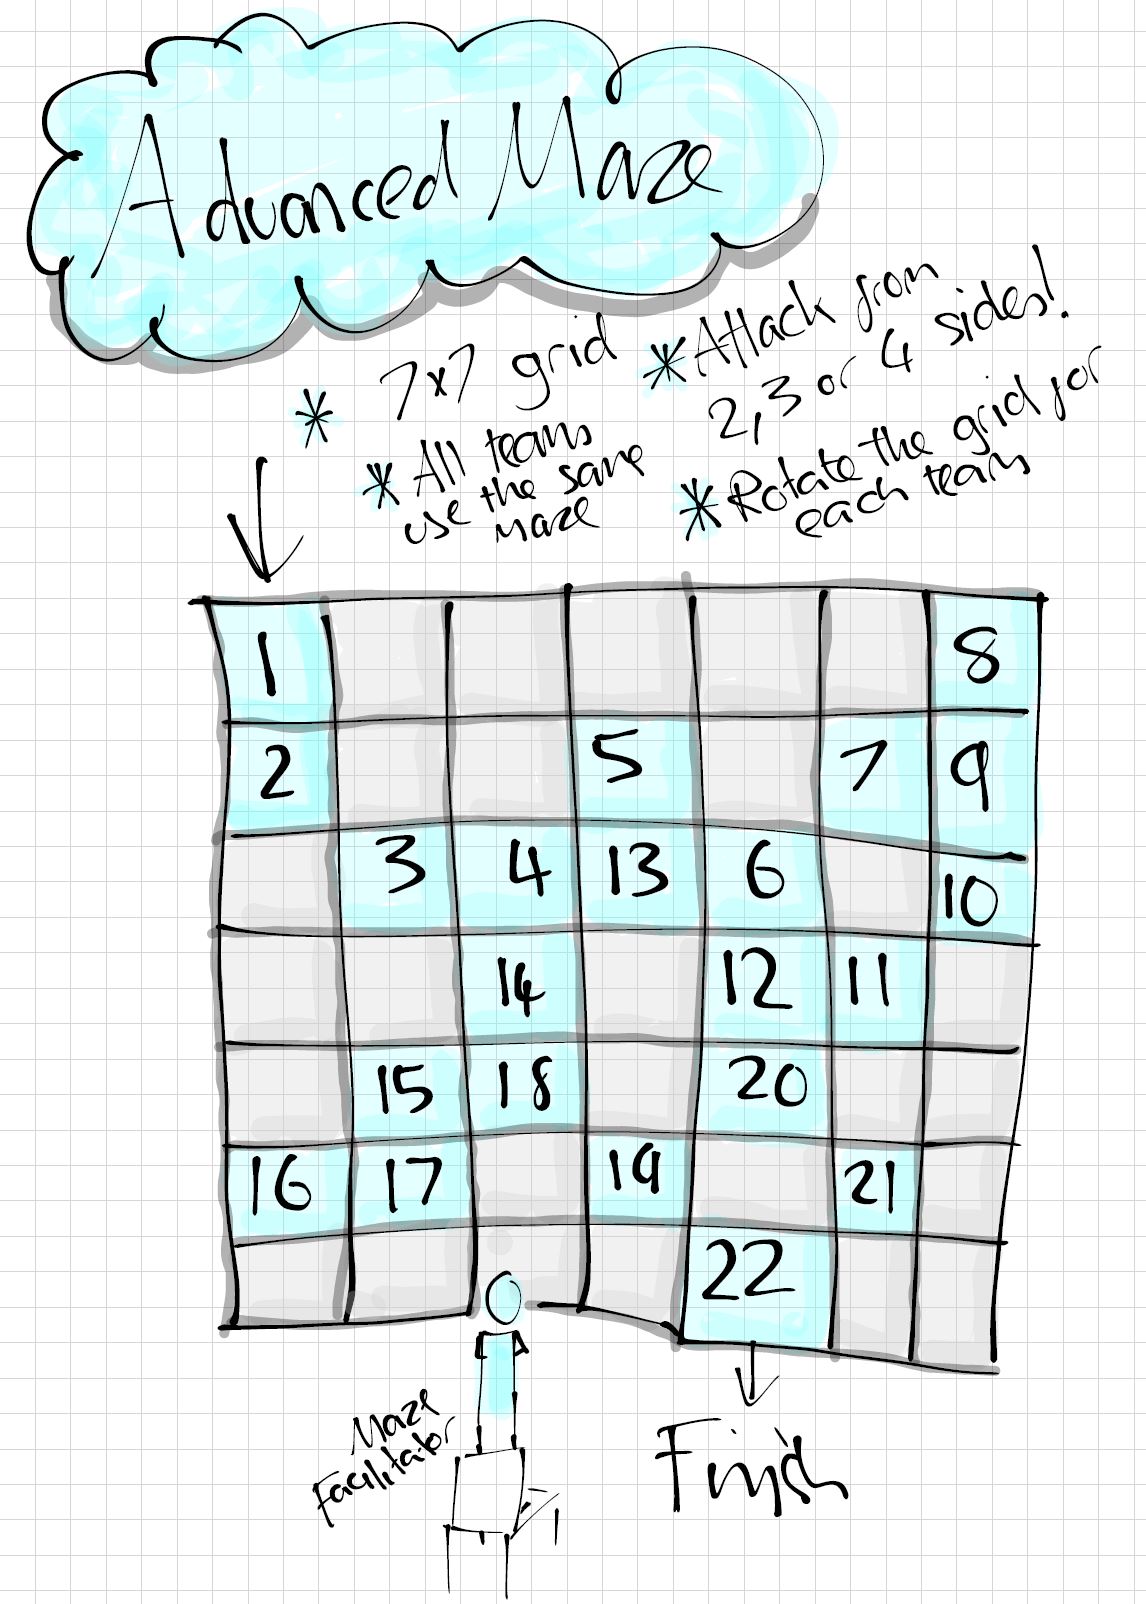 Advanced Maze
* 7x7 grid
* All teams
use the same
maze
* Attack from
2,3 or 4 sides!
* Rotate the grid for
each team
1 8
2 5 7 9
3 4 13 6 10
14 12 11
15 18 20
16 17 19 21
22
Maze
Facilitator
Finish